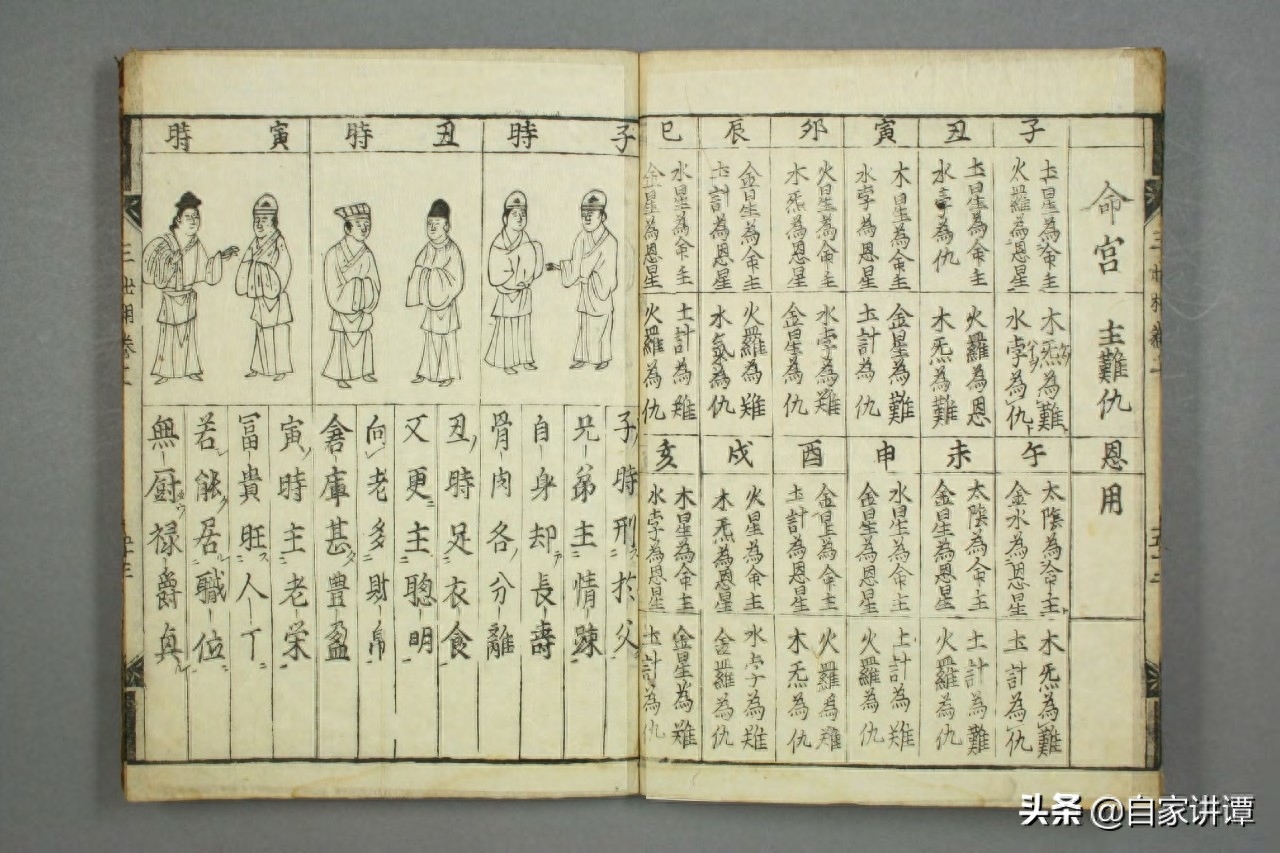 命宮 主難仇
恩
用
子
土星為命主
火羅為恩星
木炁為難
水孛為仇
丑
土星為命主
水孛為仇
火羅為恩
木炁為難
寅
木星為命主
水孛為恩星
金星為難
土計為仇
卯
火星為命主
木炁為恩星
水孛為难
金星為仇
辰
金星為命主
土計為恩星
火羅為难
水氣為仇
巳
水星為命主
金星為恩星
土計為难
火羅為仇
午
太陰為命主
金水為恩星
木炁為難
土計為仇
未
太陰為命主
金星為恩星
土計為難
火羅為仇
申
水星為命主
金星為恩星
土計為难
火羅為仇
酉
金星為命主
土計為恩星
火羅為难
木炁為仇
戌
火星為命主
木炁為恩星
水孛為难
金羅為仇
亥
木星為命主
水孛為恩星
金星為难
土計為仇
子時
丑時
寅時
子時刑於父
兄弟主情踈
自身却長壽
骨肉各分離
丑時足衣食
又更主聰明
向老多財帛
倉庫甚豊盈
寅時主老栄
冨貴旺人丁
若能居職位
無厨禄爵真
三世相卷二
头条 @自家讲谭